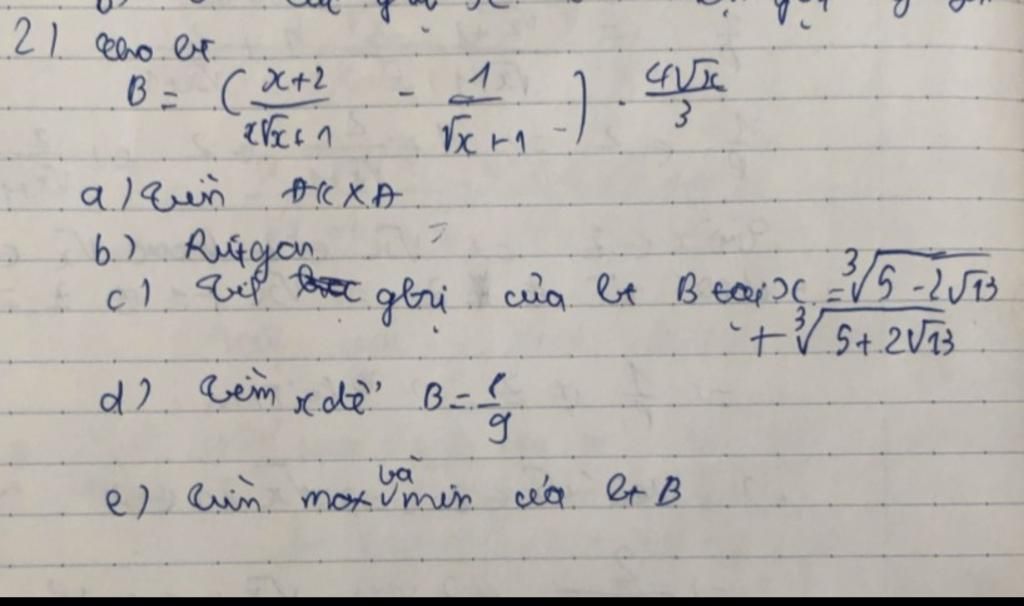 2) Cho bt
B = ( \frac{x+2}{x\sqrt{x}+1} - \frac{1}{\sqrt{x}+1} ) . \frac{4\sqrt{x}}{3}
a) Tìm ĐKXĐ
b) Rút gọn
c) Tính gtrị của bt B tại x = \sqrt[3]{5-2\sqrt{13}}
+ \sqrt[3]{5+2\sqrt{13}}
d) Tìm x để B = \frac{8}{9}
e) Tìm max và min của bt B